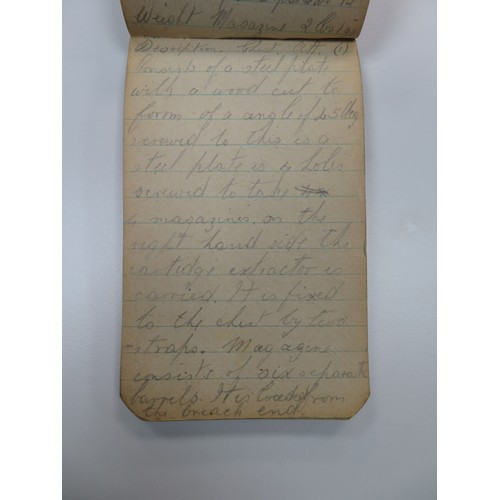 Weight Magazine 2 lbs
Description. Chest. Att. (1)
Consists of a steel plate
with a wood cut to
form of a angle of 45 deg
screwed to this is a
steel plate is 4 holes
screwed to take
4 magazines. on the
right hand side the
cartidge extractor is
carried. It is fixed
to the chest by two
straps. Magazine
consists of six separate
barrels. It is loaded from
the breach end.